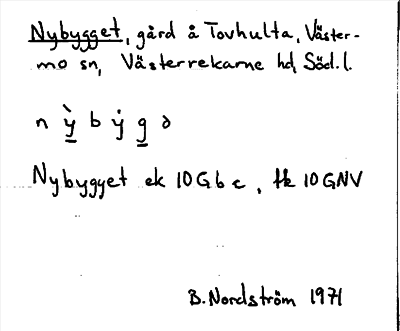 Nybygget, gård å Tovhulta, Väster-
mo sn, Västerrekarne hd, Söd. l.
n ỳ b ẏ g ə
Nybygget ek 10G b c, tk 10GNV
B. Nordström 1971